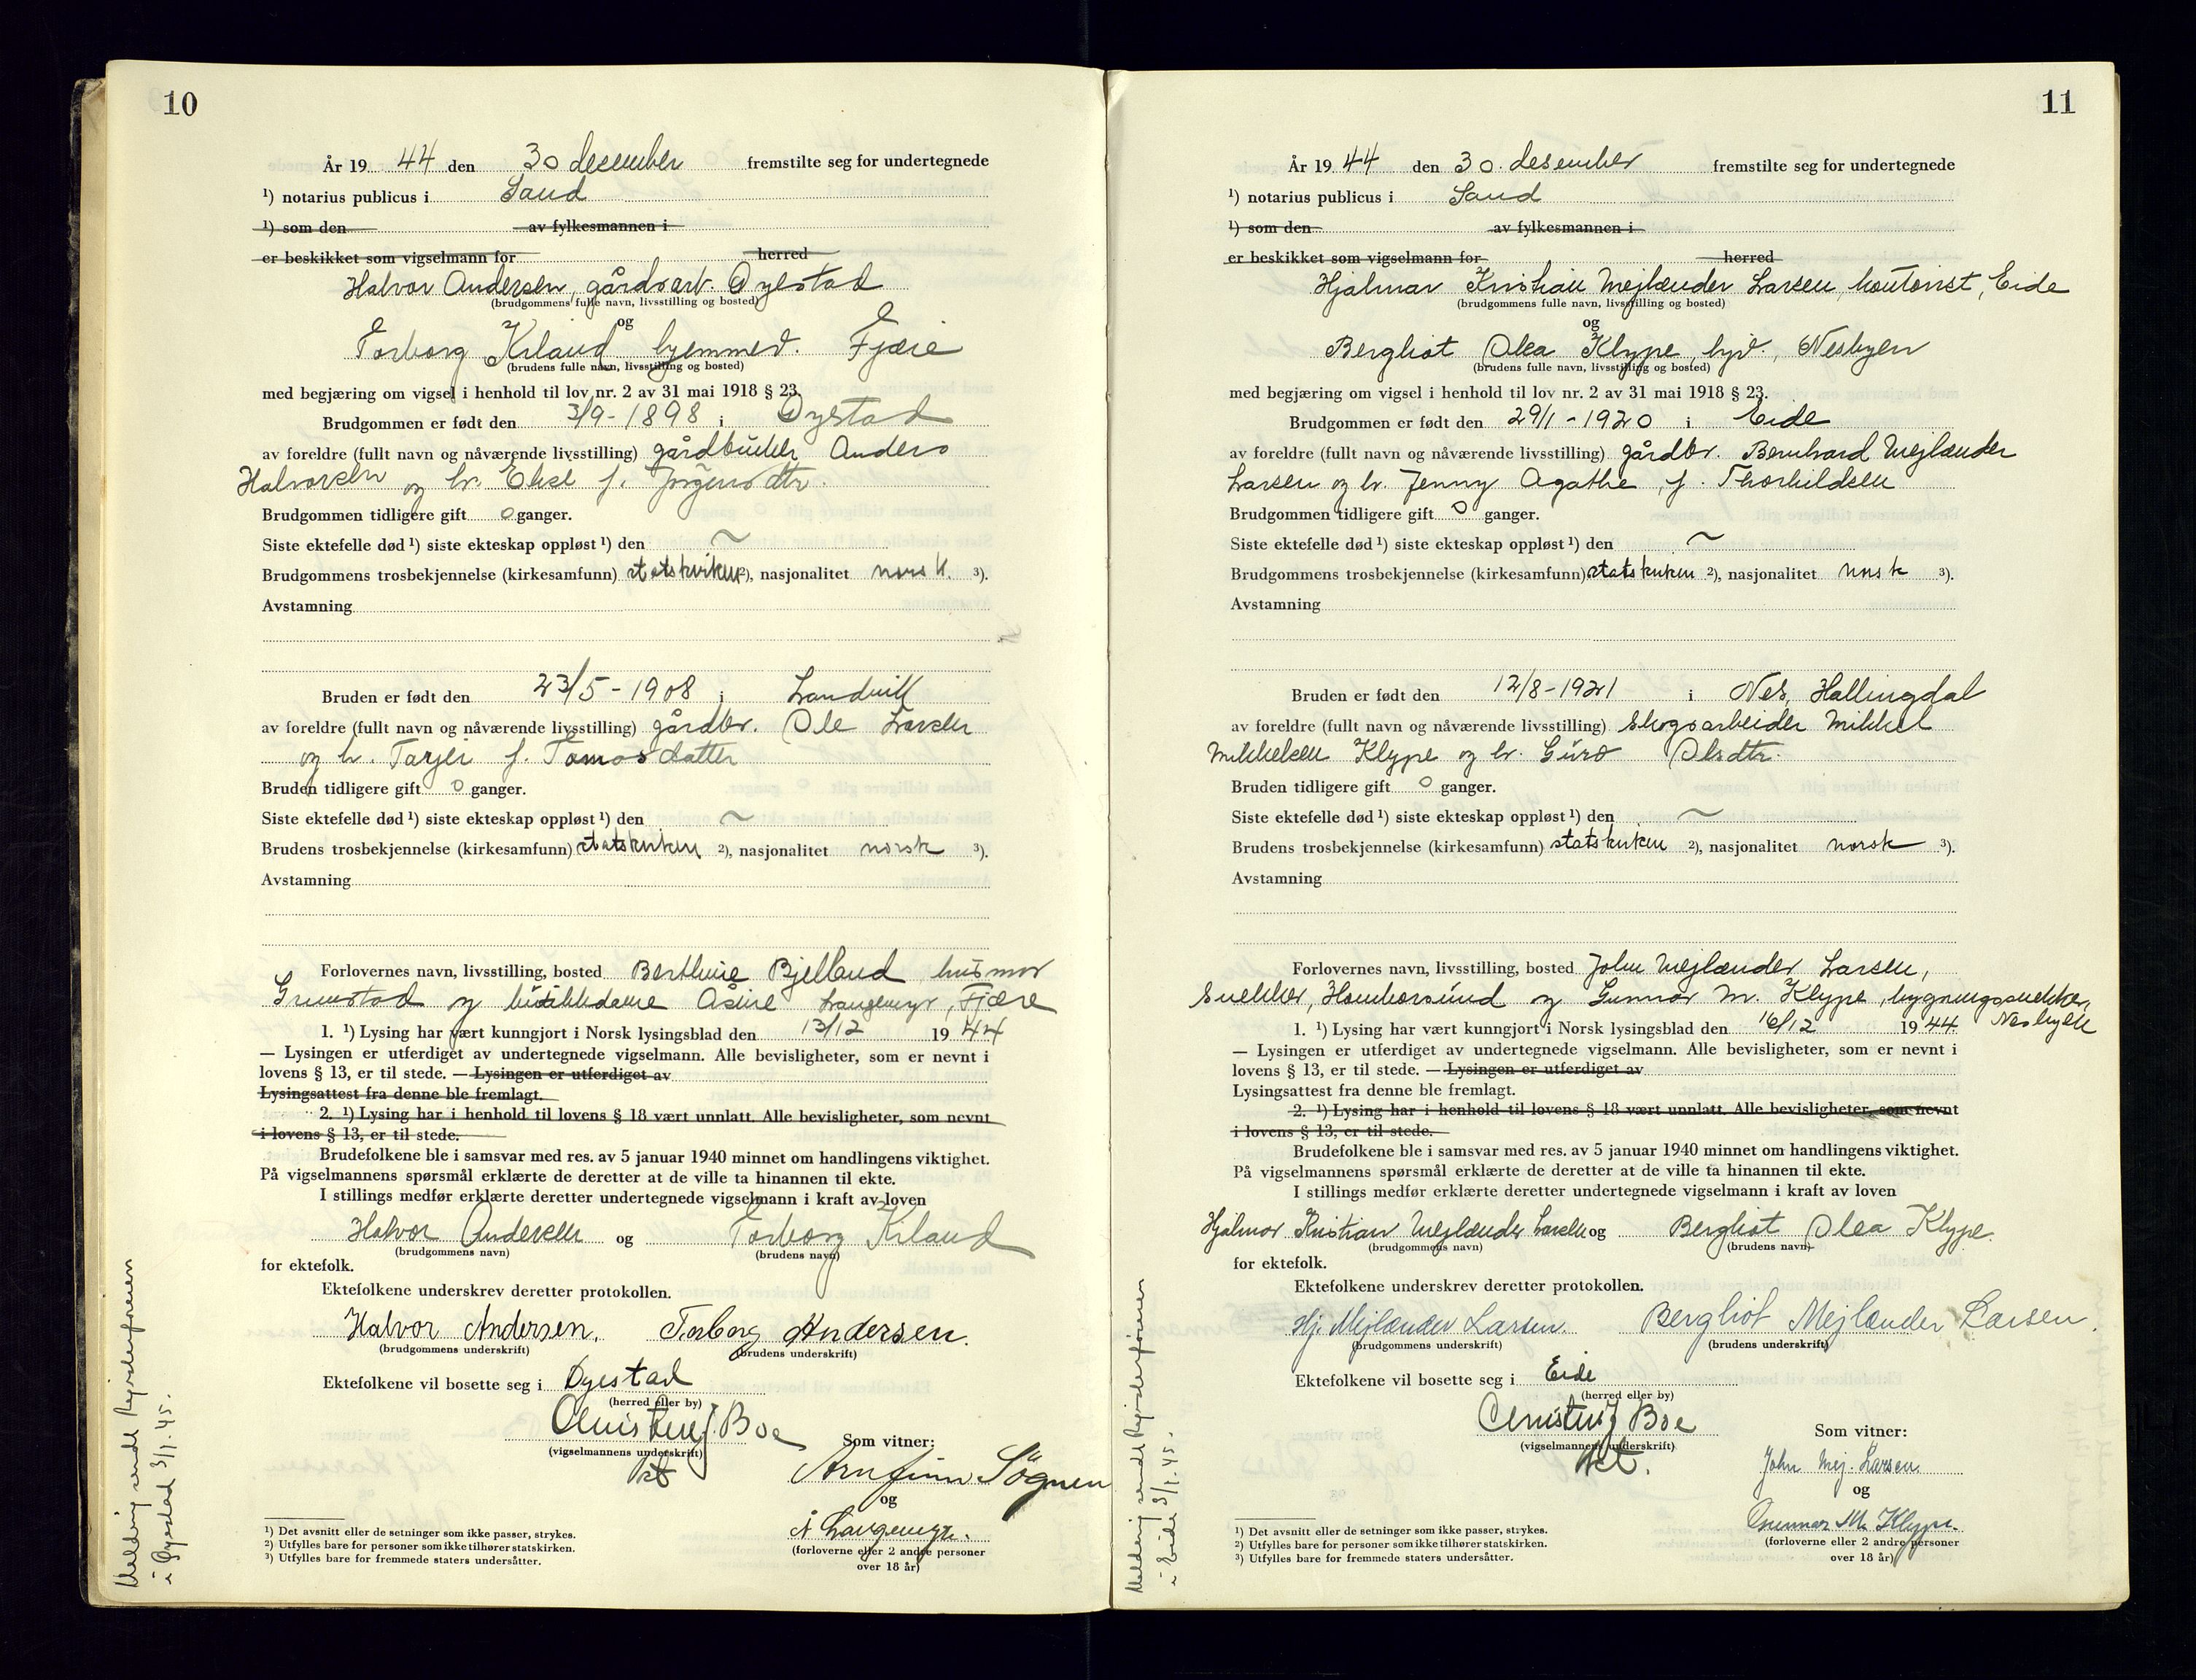 10
År 19 44 den 30 desember fremstilte seg for undertegnede
¹) notarius publicus i Sand
¹) som den av fylkesmannen i
er beskikket som vigselmann for herred
Halvor Andersen, gårdsarb. Øyestad
(brudgommens fulle navn, livsstilling og bosted)
og
Torborg Kiland, hjemmev. Fjære
(brudens fulle navn, livsstilling og bosted)
med begjæring om vigsel i henhold til lov nr. 2 av 31 mai 1918 § 23.
Brudgommen er født den 3/9-1898 i Øyestad
av foreldre (fullt navn og nåværende livsstilling) gårdbruker Anders
Halvorsen og h. Elise f. Jørgensdtr.
Brudgommen tidligere gift 0 ganger.
Siste ektefelle død ¹) siste ekteskap oppløst ¹) den ~
Brudgommens trosbekjennelse (kirkesamfunn) statskirken ²), nasjonalitet norsk. ³).
Avstamning
Bruden er født den 23/5-1908 i Landvik
av foreldre (fullt navn og nåværende livsstilling) gårdbr. Ole Larsen
og h. Tarjei f. Tomasdatter
Bruden tidligere gift 0 ganger.
Siste ektefelle død ¹) siste ekteskap oppløst ¹) den ~
Brudens trosbekjennelse (kirkesamfunn) statskirken ²), nasjonalitet norsk ³).
Avstamning
Forlovernes navn, livsstilling, bosted Berthine Bjelland, husmor
Grimstad og butikkdame Åsine Langemyr, Fjære
1. ¹) Lysing har vært kunngjort i Norsk lysingsblad den 13/12 19 44
— Lysingen er utferdiget av undertegnede vigselmann. Alle bevisligheter, som er nevnt i
lovens § 13, er til stede. — Lysingen er utferdiget av
Lysingsattest fra denne ble fremlagt.
2. ¹) Lysing har i henhold til lovens § 18 vært unnlatt. Alle bevisligheter, som nevnt
i lovens § 13, er til stede.
Brudefolkene ble i samsvar med res. av 5 januar 1940 minnet om handlingens viktighet.
På vigselmannens spørsmål erklærte de deretter at de ville ta hinannen til ekte.
I stillings medfør erklærte deretter undertegnede vigselmann i kraft av loven
Halvor Andersen og Torborg Kiland
(brudgommens navn) (brudens navn)
for ektefolk.
Ektefolkene underskrev deretter protokollen.
Halvor Andersen. Torborg Andersen.
(brudgommens underskrift) (brudens underskrift)
Ektefolkene vil bosette seg i Øyestad
(herred eller by)
Christen J. Boe
(vigselmannens underskrift)
Som vitner:
Arnfinn Sögnen
og
Å Langemyr.
(forloverne eller 2 andre personer
over 18 år)
¹) Det avsnitt eller de setninger som ikke passer, strykes.
²) Utfylles bare for personer som ikke tilhører statskirken.
³) Utfylles bare for fremmede staters undersåtter.
Melding sendt Rejsterføreren
i Øyestad 3/1.45.
11
År 19 44 den 30. desember fremstilte seg for undertegnede
¹) notarius publicus i Sand
¹) som den av fylkesmannen i
er beskikket som vigselmann for herred
Hjalmar Kristian Mejlænder Larsen, kontorist, Eide
(brudgommens fulle navn, livsstilling og bosted)
og
Bergliot Olea Klype, hjv., Nesbyen
(brudens fulle navn, livsstilling og bosted)
med begjæring om vigsel i henhold til lov nr. 2 av 31 mai 1918 § 23.
Brudgommen er født den 29/1-1920 i Eide
av foreldre (fullt navn og nåværende livsstilling) gårdbr. Bernhard Mejlænder
Larsen og h. Jenny Agathe, f. Thorkildsen
Brudgommen tidligere gift 0 ganger.
Siste ektefelle død ¹) siste ekteskap oppløst ¹) den ~
Brudgommens trosbekjennelse (kirkesamfunn) statskirken ²), nasjonalitet norsk ³).
Avstamning
Bruden er født den 12/8-1921 i Nes, Hallingdal
av foreldre (fullt navn og nåværende livsstilling) skogsarbeider Mikkel
Mikkelsen Klype og h. Guro Olsdtr.
Bruden tidligere gift 0 ganger.
Siste ektefelle død ¹) siste ekteskap oppløst ¹) den ~
Brudens trosbekjennelse (kirkesamfunn) statskirken ²), nasjonalitet norsk ³).
Avstamning
Forlovernes navn, livsstilling, bosted John Mejlænder Larsen,
snekker, Homborsund og Gunnar M. Klype, bygningssnekker,
1. ¹) Lysing har vært kunngjort i Norsk lysingsblad den 16/12 19 44. Nesbyen
— Lysingen er utferdiget av undertegnede vigselmann. Alle bevisligheter, som er nevnt i
lovens § 13, er til stede. — Lysingen er utferdiget av
Lysingsattest fra denne ble fremlagt.
2. ¹) Lysing har i henhold til lovens § 18 vært unnlatt. Alle bevisligheter, som nevnt
i lovens § 13, er til stede.
Brudefolkene ble i samsvar med res. av 5 januar 1940 minnet om handlingens viktighet.
På vigselmannens spørsmål erklærte de deretter at de ville ta hinannen til ekte.
I stillings medfør erklærte deretter undertegnede vigselmann i kraft av loven
Hjalmar Kristian Mejlænder Larsen og Bergliot Olea Klype.
(brudgommens navn) (brudens navn)
for ektefolk.
Ektefolkene underskrev deretter protokollen.
Hj. Mejlænder Larsen. Bergliot Mejlænder Larsen.
(brudgommens underskrift) (brudens underskrift)
Ektefolkene vil bosette seg i Eide
(herred eller by)
Christen J Boe
(vigselmannens underskrift)
Som vitner:
John Mej. Larsen
og
Gunnar M. Klype.
(forloverne eller 2 andre personer
over 18 år)
¹) Det avsnitt eller de setninger som ikke passer, strykes.
²) Utfylles bare for personer som ikke tilhører statskirken.
³) Utfylles bare for fremmede staters undersåtter.
Melding sendt Rejsterføreren
i Eide 3/1.45.